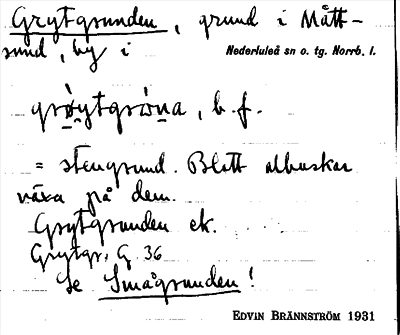 Grytgrunden, grund i Mått-
sund, by i Nederluleå sn o. tg. Norrb. l.
grö̀ytgrɷna, b.f.
= stengrund. Blott albuskar
växa på dem.
Grytgrunden ek.
Grytgr. G 36
Se Smågrunden!
EDVIN BRÄNNSTRÖM 1931